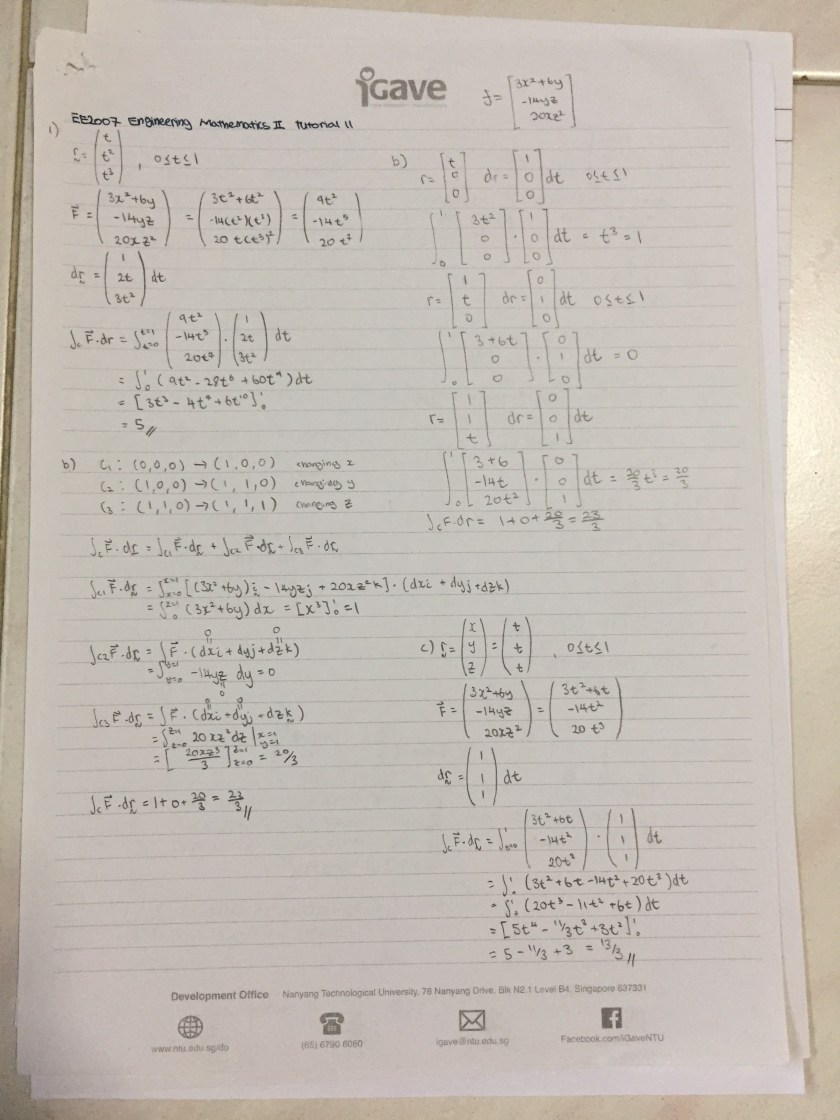 iGave
f = [3x²+6y
-14yz
20xz²]
EE2007 Engineering Mathematics II Tutorial 11
1)
r = (t
t²
t³) , 0≤t≤1
F = (3x²+6y
-14yz
20xz²) = (3t²+6t²
-14(t²)(t³)
20t(t³)²) = (9t²
-14t⁵
20t⁷)
dr = (1
2t
3t²) dt
∫c F·dr = ∫t=0^t=1 (9t²
-14t⁵
20t⁷) · (1
2t
3t²) dt
= ∫₀¹ (9t² - 28t⁶ + 60t⁹)dt
= [3t³ - 4t⁷ + 6t¹⁰]₀¹
= 5 //
b) C₁ : (0,0,0) → (1,0,0) changing x
C₂ : (1,0,0) → (1,1,0) changing y
C₃ : (1,1,0) → (1,1,1) changing z
∫c F·dr = ∫c1 F·dr + ∫c2 F·dr + ∫c3 F·dr
∫c1 F·dr = ∫x=0^x=1 [(3x²+6y)i - 14yzj + 20xz²k] · (dxi + dyj + dzk)
= ∫₀^x=1 (3x²+6y)dx = [x³]₀¹ = 1
0 0
∫c2 F·dr = ∫F·(dxi + dyj + dzk)
= ∫y=0^y=1 -14yz dy = 0
0
0 0
∫c3 F·dr = ∫F·(dxi + dyj + dzk)
= ∫z=0^z=1 20xz²dz |x=1 y=1
= [20xz³/3]z=0^z=1 = 20/3
∫c F·dr = 1+0+20/3 = 23/3 //
b)
r = [t
0
0] dr = [1
0
0] dt 0≤t≤1
∫₀¹ [3t²
0
0] · [1
0
0] dt = t³ = 1
r = [1
t
0] dr = [0
1
0] dt 0≤t≤1
∫₀¹ [3+6t
0
0] · [0
1
0] dt = 0
r = [1
1
t] dr = [0
0
1] dt
∫₀¹ [3+6
-14t
20t²] · [0
0
1] dt = 20/3 t³ = 20/3
∫c F·dr = 1+0+20/3 = 23/3
c) r = (x
y
z) = (t
t
t) , 0≤t≤1
F = (3x²+6y
-14yz
20xz²) = (3t²+6t
-14t²
20t³)
dr = (1
1
1) dt
∫c F·dr = ∫t=0^1 (3t²+6t
-14t²
20t³) · (1
1
1) dt
= ∫₀¹ (3t²+6t-14t²+20t³)dt
= ∫₀¹ (20t³-11t²+6t)dt
= [5t⁴ - 11/3t³ + 3t²]₀¹
= 5 - 11/3 + 3 = 13/3 //
Development Office Nanyang Technological University, 76 Nanyang Drive, Blk N2.1 Level B4, Singapore 637331
www.ntu.edu.sg/do
(65) 6790 6060
igave@ntu.edu.sg
Facebook.com/iGaveNTU